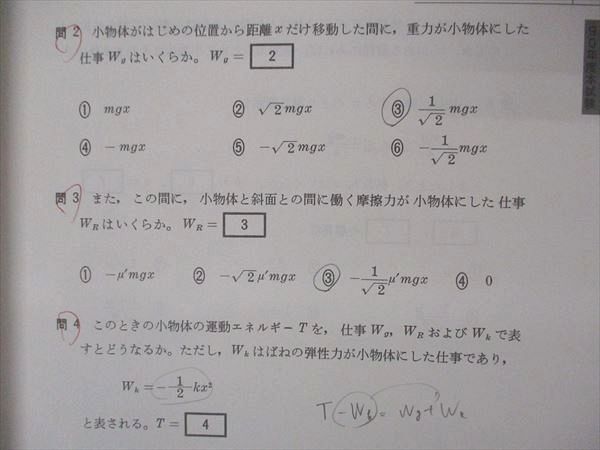 問2 小物体がはじめの位置から距離 x だけ移動した間に，重力が小物体にした
仕事 Wg はいくらか。Wg = 2
① mgx ② √2 mgx ③ 1/√2 mgx
④ −mgx ⑤ −√2 mgx ⑥ −1/√2 mgx
問3 また，この間に，小物体と斜面との間に働く摩擦力が小物体にした仕事
WR はいくらか。WR = 3
① −μ′mgx ② −√2 μ′mgx ③ −1/√2 μ′mgx ④ 0
問4 このときの小物体の運動エネルギー T を，仕事 Wg，WR および Wk で表
すとどうなるか。ただし，Wk はばねの弾性力が小物体にした仕事であり，
Wk = −1/2 kx²
と表される。T = 4